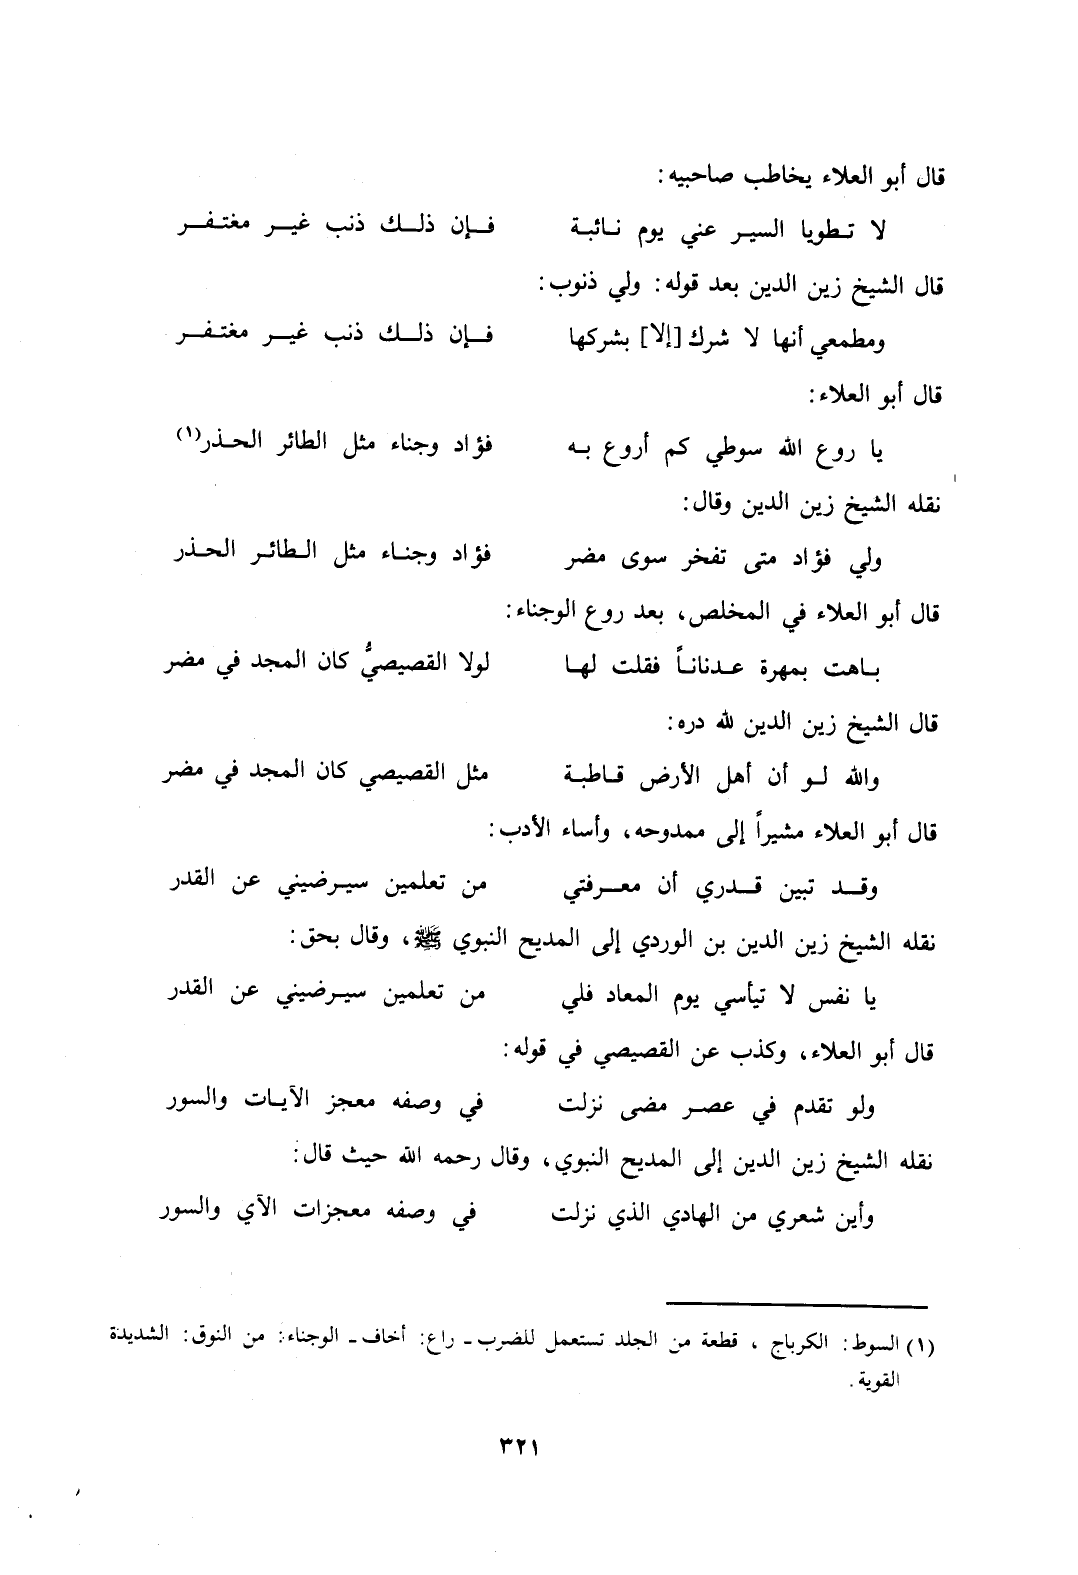 قال أبو العلاء يخاطب صاحبيه:
لا تطويا السير عني يوم نائبة فإن ذلك ذنب غير مغتفر
قال الشيخ زين الدين بعد قوله: ولي ذنوب:
ومطمعي أنها لا شرك [إلا] بشركها فإن ذلك ذنب غير مغتفر
قال أبو العلاء:
يا روع الله سوطي كم أروع به فؤاد وجناء مثل الطائر الحذر(١)
نقله الشيخ زين الدين وقال:
ولي فؤاد متى تفخر سوى مضر فؤاد وجناء مثل الطائر الحذر
قال أبو العلاء في المخلص، بعد روع الوجناء:
باهت بمهرة عدناناً فقلت لها لولا القصيصيُّ كان المجد في مضر
قال الشيخ زين الدين لله دره:
والله لو أن أهل الأرض قاطبة مثل القصيصي كان المجد في مضر
قال أبو العلاء مشيراً إلى ممدوحه، وأساء الأدب:
وقد تبين قدري أن معرفتي من تعلمين سيرضيني عن القدر
نقله الشيخ زين الدين بن الوردي إلى المديح النبوي ﷺ، وقال بحق:
يا نفس لا تيأسي يوم المعاد فلي من تعلمين سيرضيني عن القدر
قال أبو العلاء، وكذب عن القصيصي في قوله:
ولو تقدم في عصر مضى نزلت في وصفه معجز الآيات والسور
نقله الشيخ زين الدين إلى المديح النبوي، وقال رحمه الله حيث قال:
وأين شعري من الهادي الذي نزلت في وصفه معجزات الآي والسور
(١) السوط: الكرباج ، قطعة من الجلد تستعمل للضرب ـ راع: أخاف ـ الوجناء: من النوق: الشديدة
القوية.
٣٢١